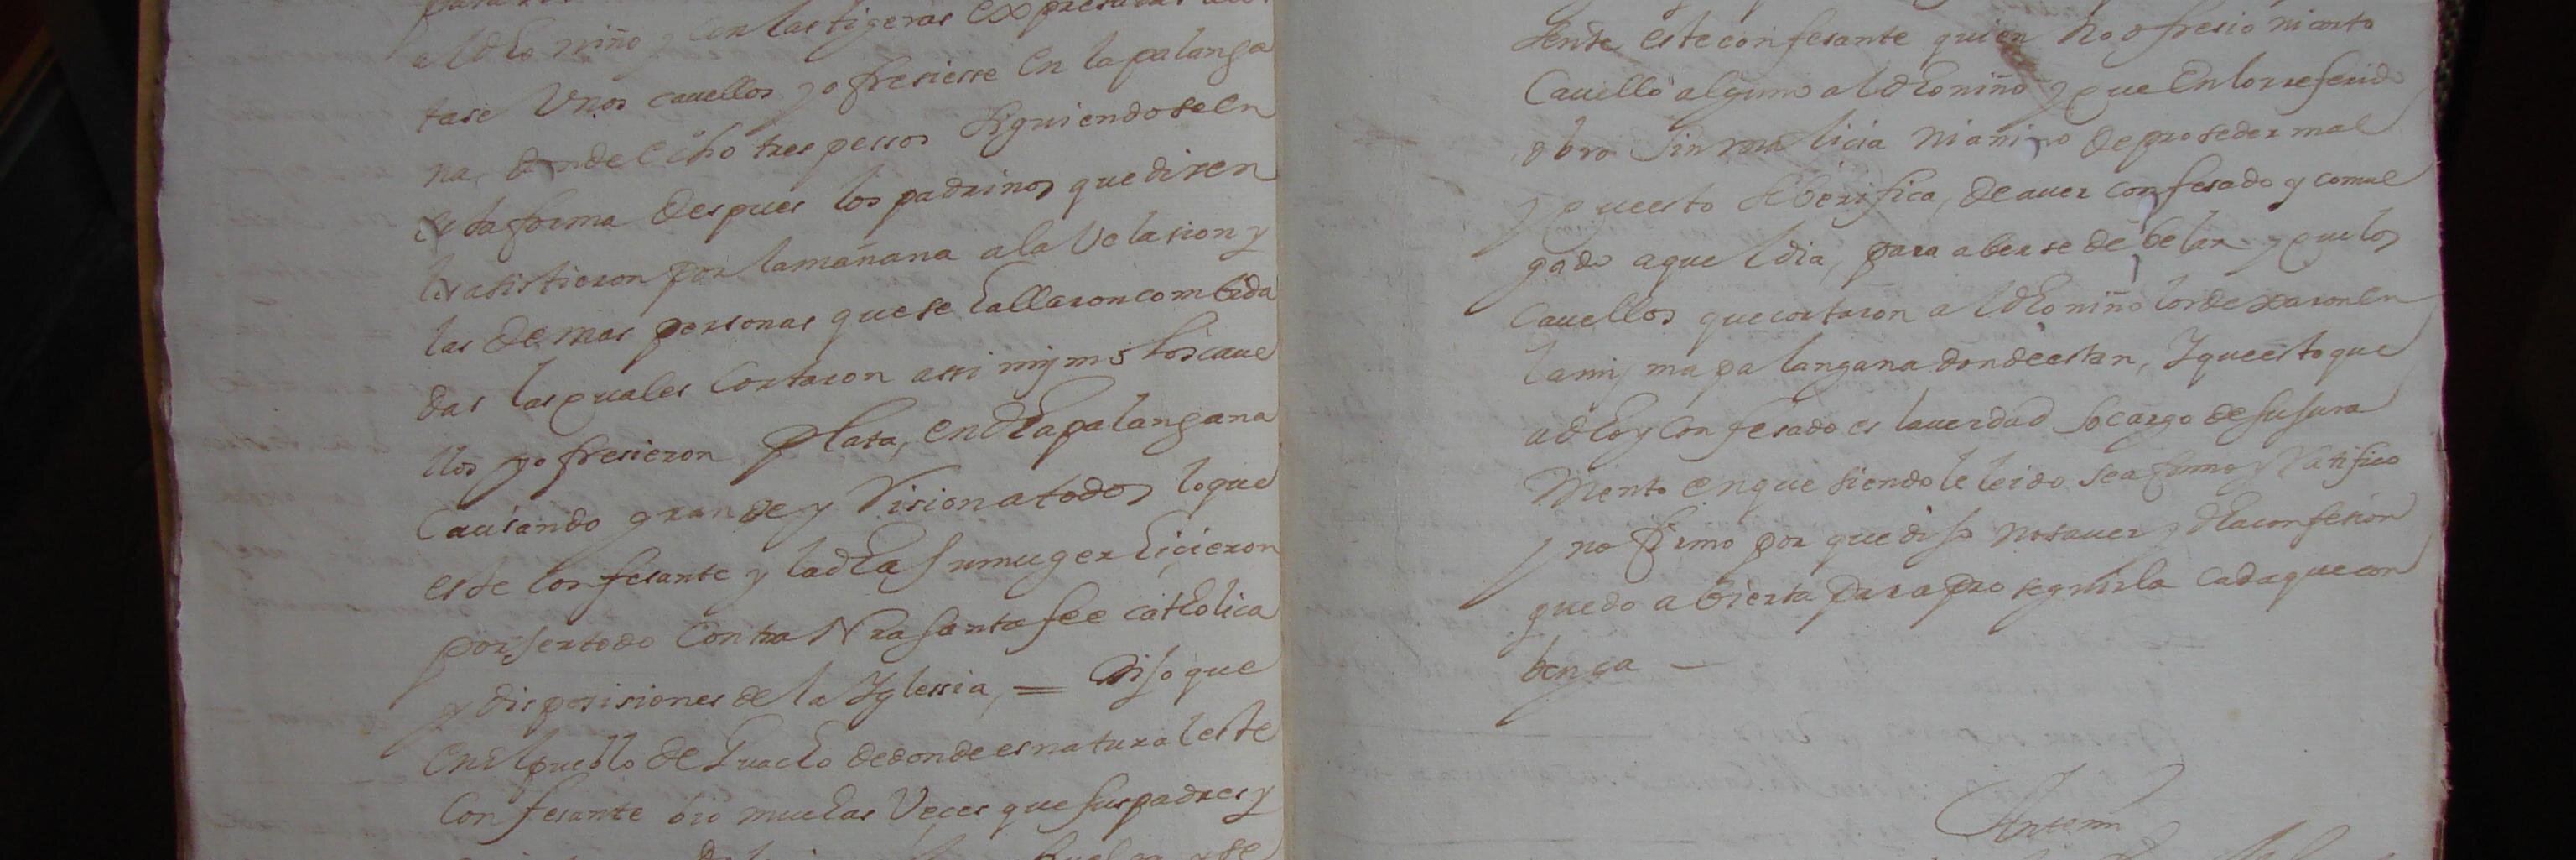 al dho niño y con las tigeras expresadas
tase Unos cauellos y ofresiesse En la palanga
na, donde echo tres pessos siguiendose En
esta forma despues los padrinos que disen
les asistieron por la mañana a la Velasion y
las demas personas que se hallaron combida
das las quales Cortaron assi mismo los caue
llos y ofresieron Plata, en dha palangana
Causando grande yrrision a todos lo que
este Confesante y la dha su muger hicieron
por ser todo contra Nra santa fee catholica
y disposisiones de la Yglessia, = Dijo que
En el pueblo de Huacho de donde es natural este
Confesante bio muchas Veces que sus padres y
sente este confesante quien no ofresio ni corto
Cauello alguno al dho niño y que En lo rreferido
obro sin malicia ni animo de proseder mal
y que esto se berifica, de auer confesado y comul
gado aquel dia, para aberse de belar y que los
Cauellos que cortaron al dho niño los dexaron En
la misma palangana donde estan, Y que esto que
a dho y confesado es la uerdad so cargo de su jura
mento en que siendole leido se afirmo y Ratifico
y no firmo por que dijo no sauer y dha confesion
quedo abierta para proseguirla cada que con
benga —
Antemi